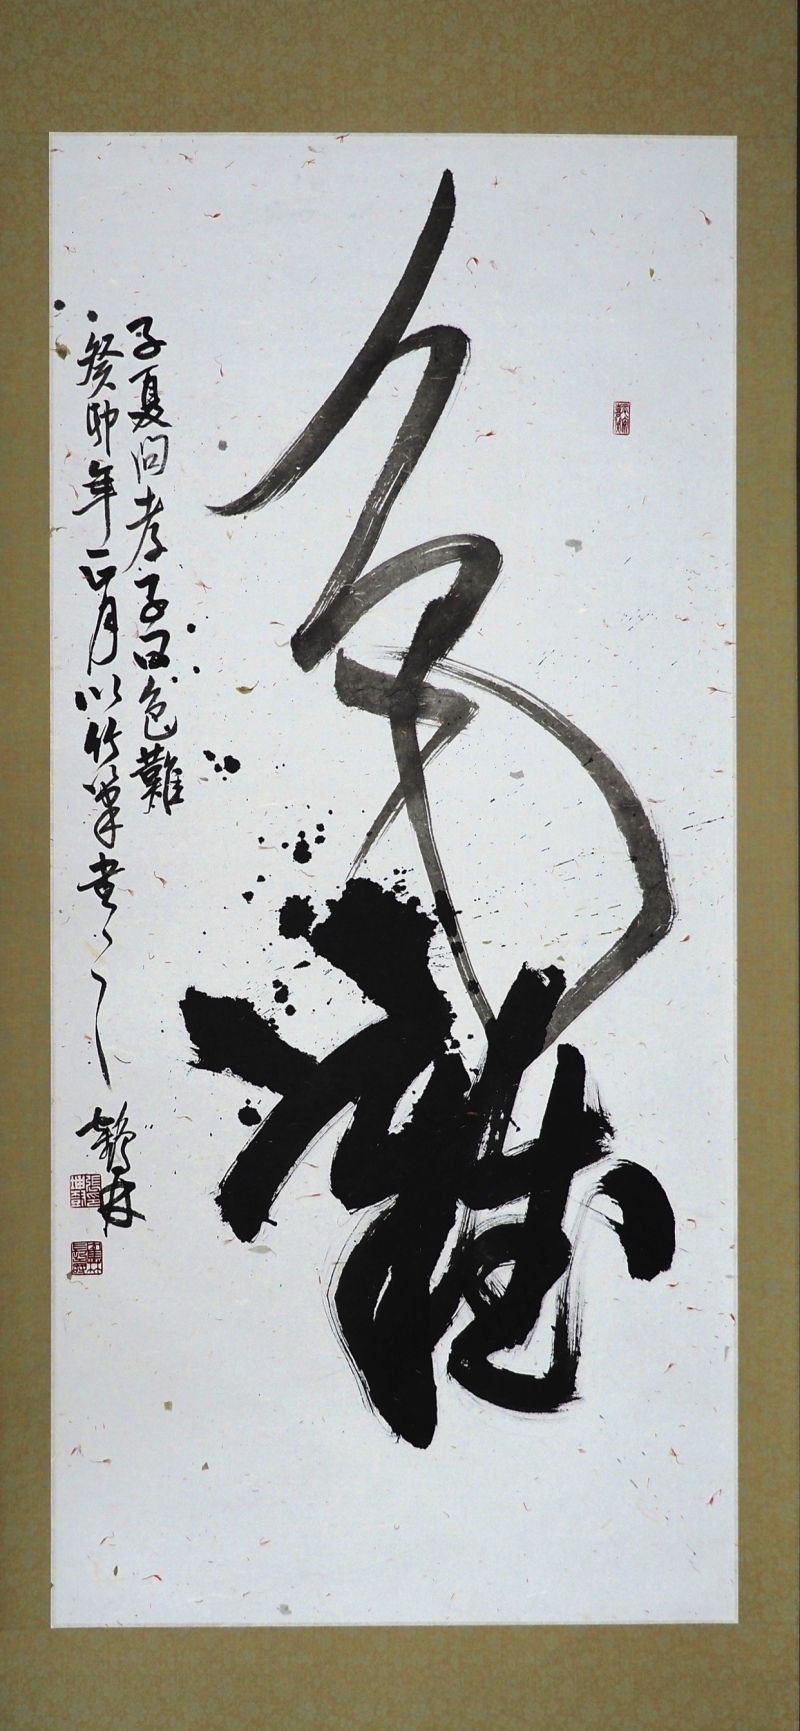 色難
子夏问孝子曰色難
癸卯年正月以竹筆書
鶴林